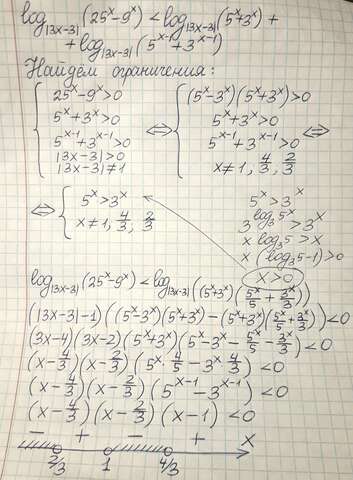 log|3x-3|(25ˣ-9ˣ) < log|3x-3|(5ˣ+3ˣ) +
+ log|3x-3|(5ˣ⁻¹+3ˣ⁻¹)
Найдём ограничения:
{ 25ˣ-9ˣ>0
5ˣ+3ˣ>0
5ˣ⁻¹+3ˣ⁻¹>0
|3x-3|>0
|3x-3|≠1
⇔ { (5ˣ-3ˣ)(5ˣ+3ˣ)>0
5ˣ+3ˣ>0
5ˣ⁻¹+3ˣ⁻¹>0
x≠1, 4/3, 2/3
⇔
⇔ { 5ˣ>3ˣ
x≠1, 4/3, 2/3
5ˣ>3ˣ
3^(log₃5ˣ)>3ˣ
x log₃5>x
x(log₃5-1)>0
x>0
log|3x-3|(25ˣ-9ˣ) < log|3x-3|((5ˣ+3ˣ)(5ˣ/5+3ˣ/3))
(|3x-3|-1)((5ˣ-3ˣ)(5ˣ+3ˣ)-(5ˣ+3ˣ)(5ˣ/5+3ˣ/3))<0
(3x-4)(3x-2)(5ˣ+3ˣ)(5ˣ-3ˣ-5ˣ/5-3ˣ/3)<0
(x-4/3)(x-2/3)(5ˣ·4/5-3ˣ·4/3)<0
(x-4/3)(x-2/3)(5ˣ⁻¹-3ˣ⁻¹)<0
(x-4/3)(x-2/3)(x-1)<0
- + - + x
2/3 1 4/3